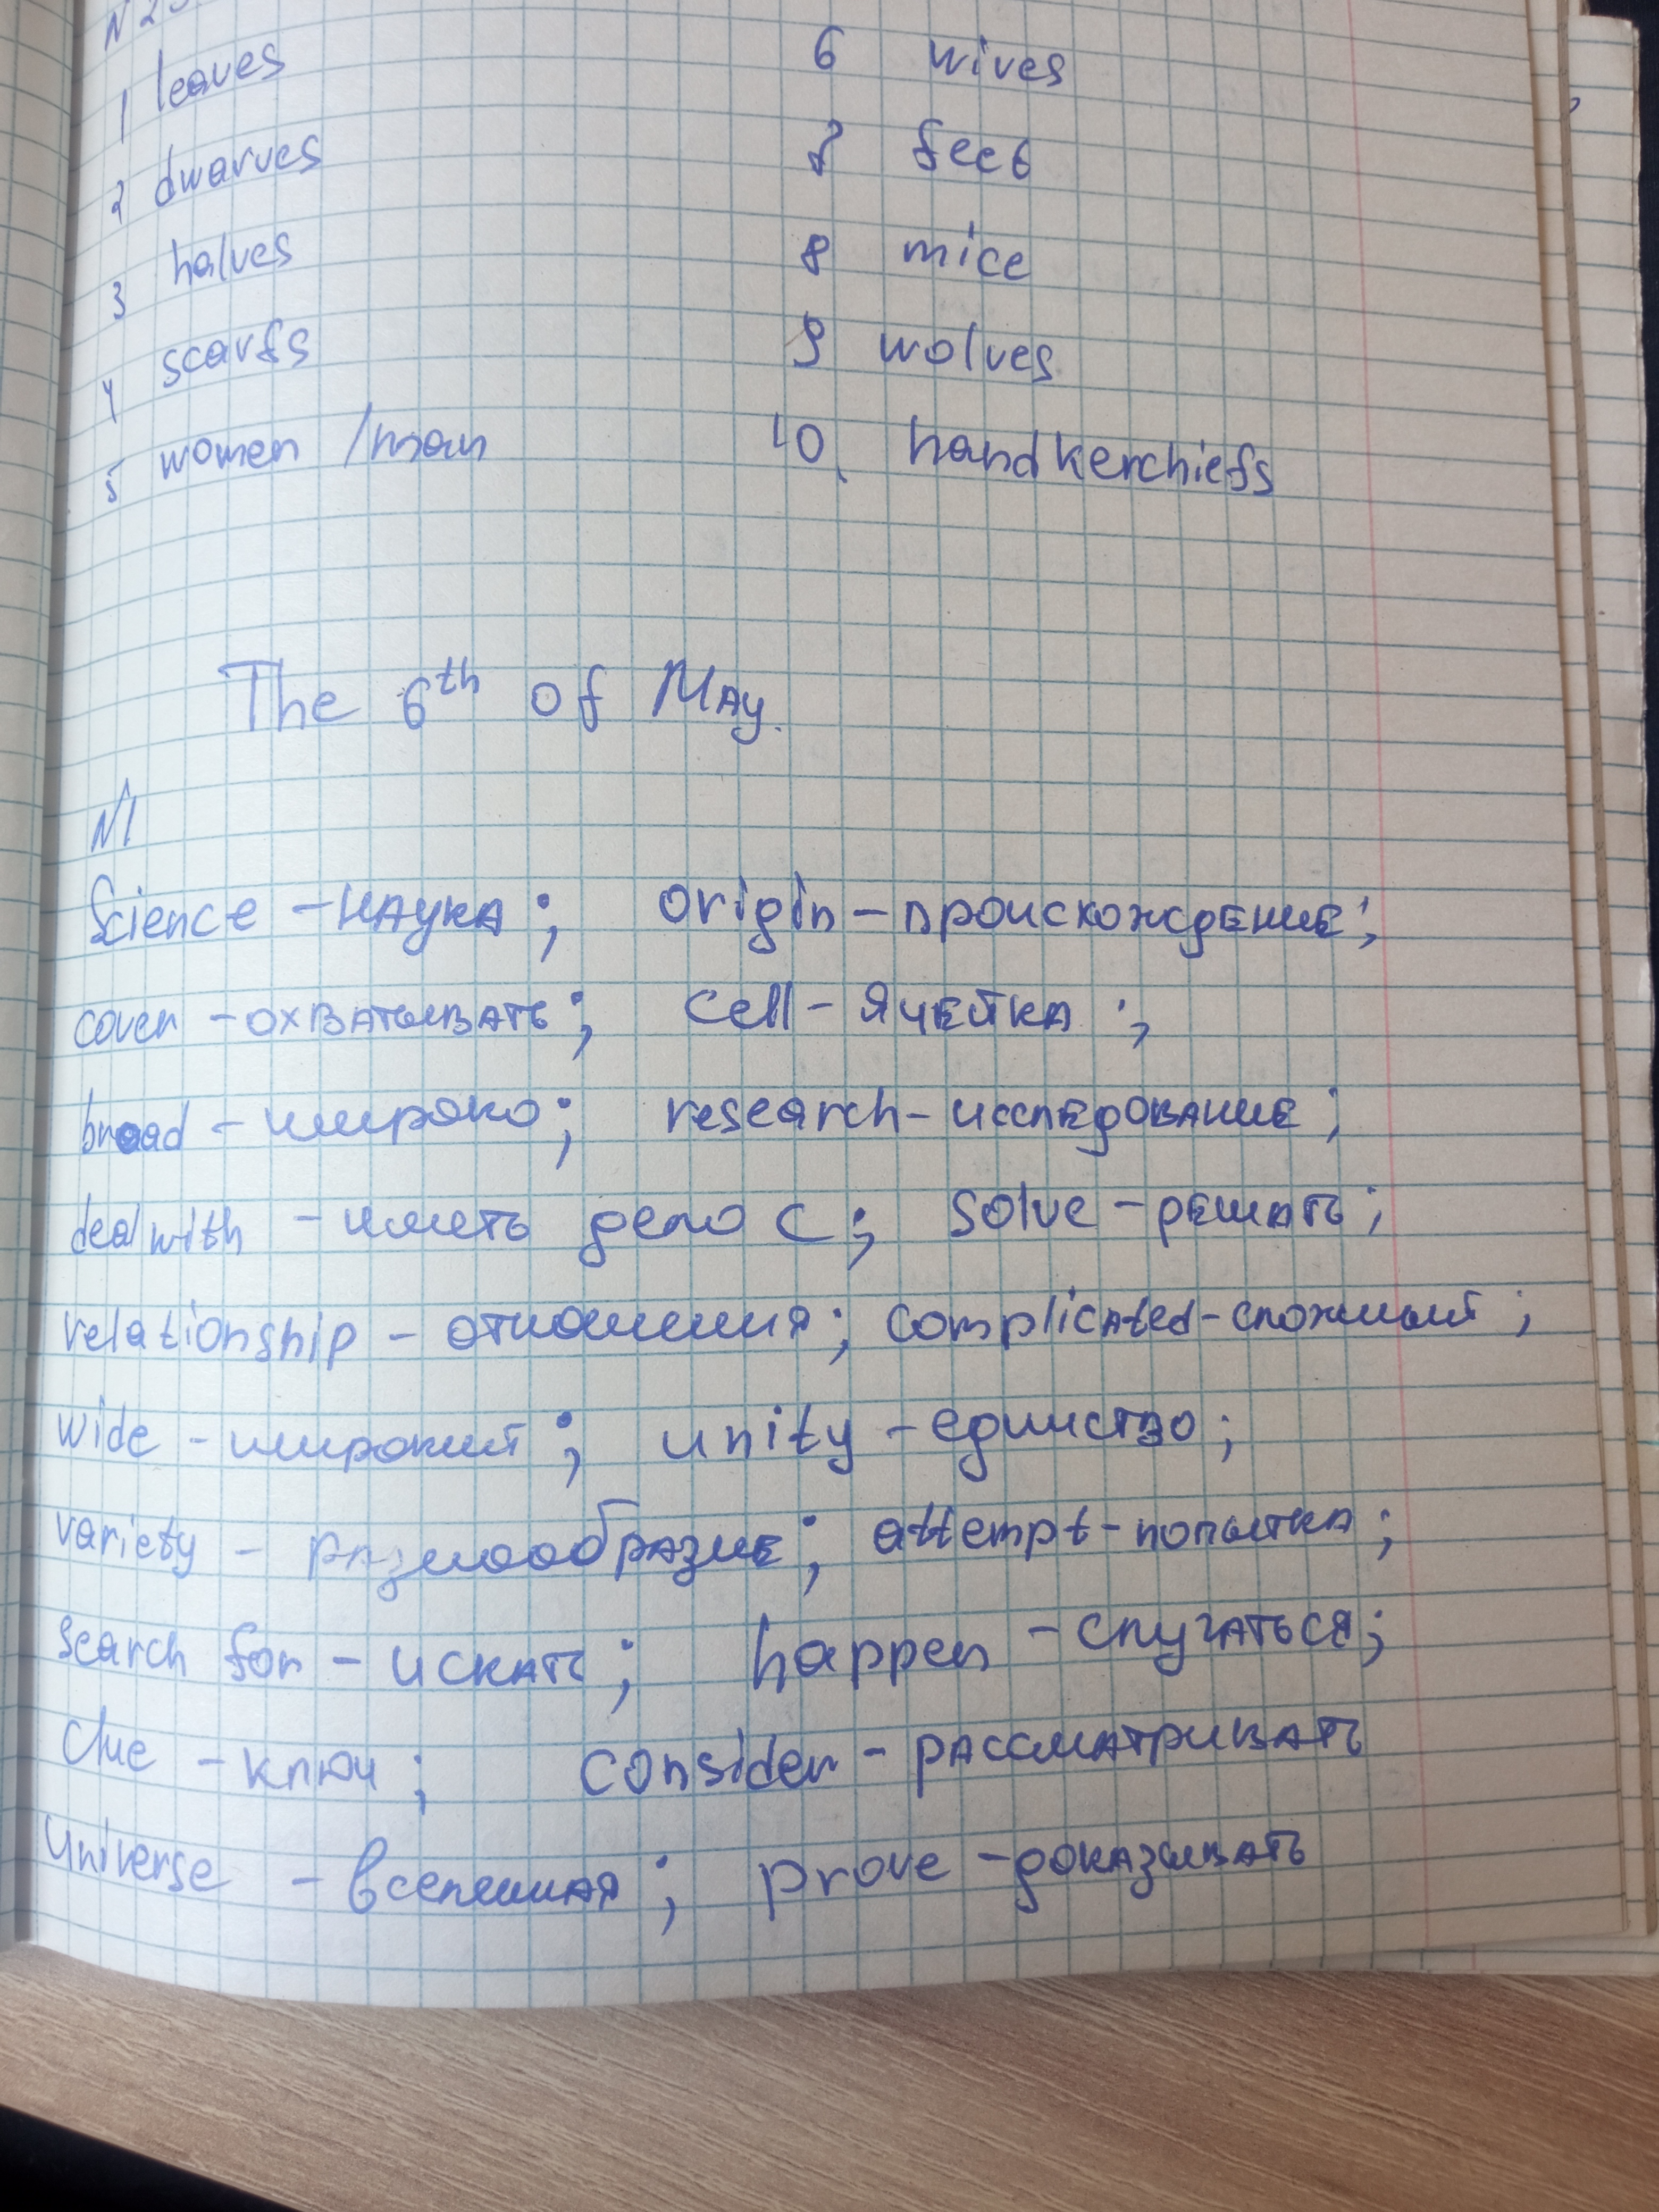 1 leaves 6 wives
2 dwarves 7 feet
3 halves 8 mice
4 scarfs 9 wolves
5 women / man 10. handkerchiefs
The 6th of May.
N1
Science - наука; origin - происхождение;
cover - охватывать; cell - ячейка;
broad - широко; research - исследование;
deal with - иметь дело с; solve - решать;
relationship - отношения; complicated - сложный;
wide - широкий; unity - единство;
variety - разнообразие; attempt - попытка;
search for - искать; happen - случаться;
Clue - ключ; consider - рассматривать
Universe - вселенная; prove - доказывать